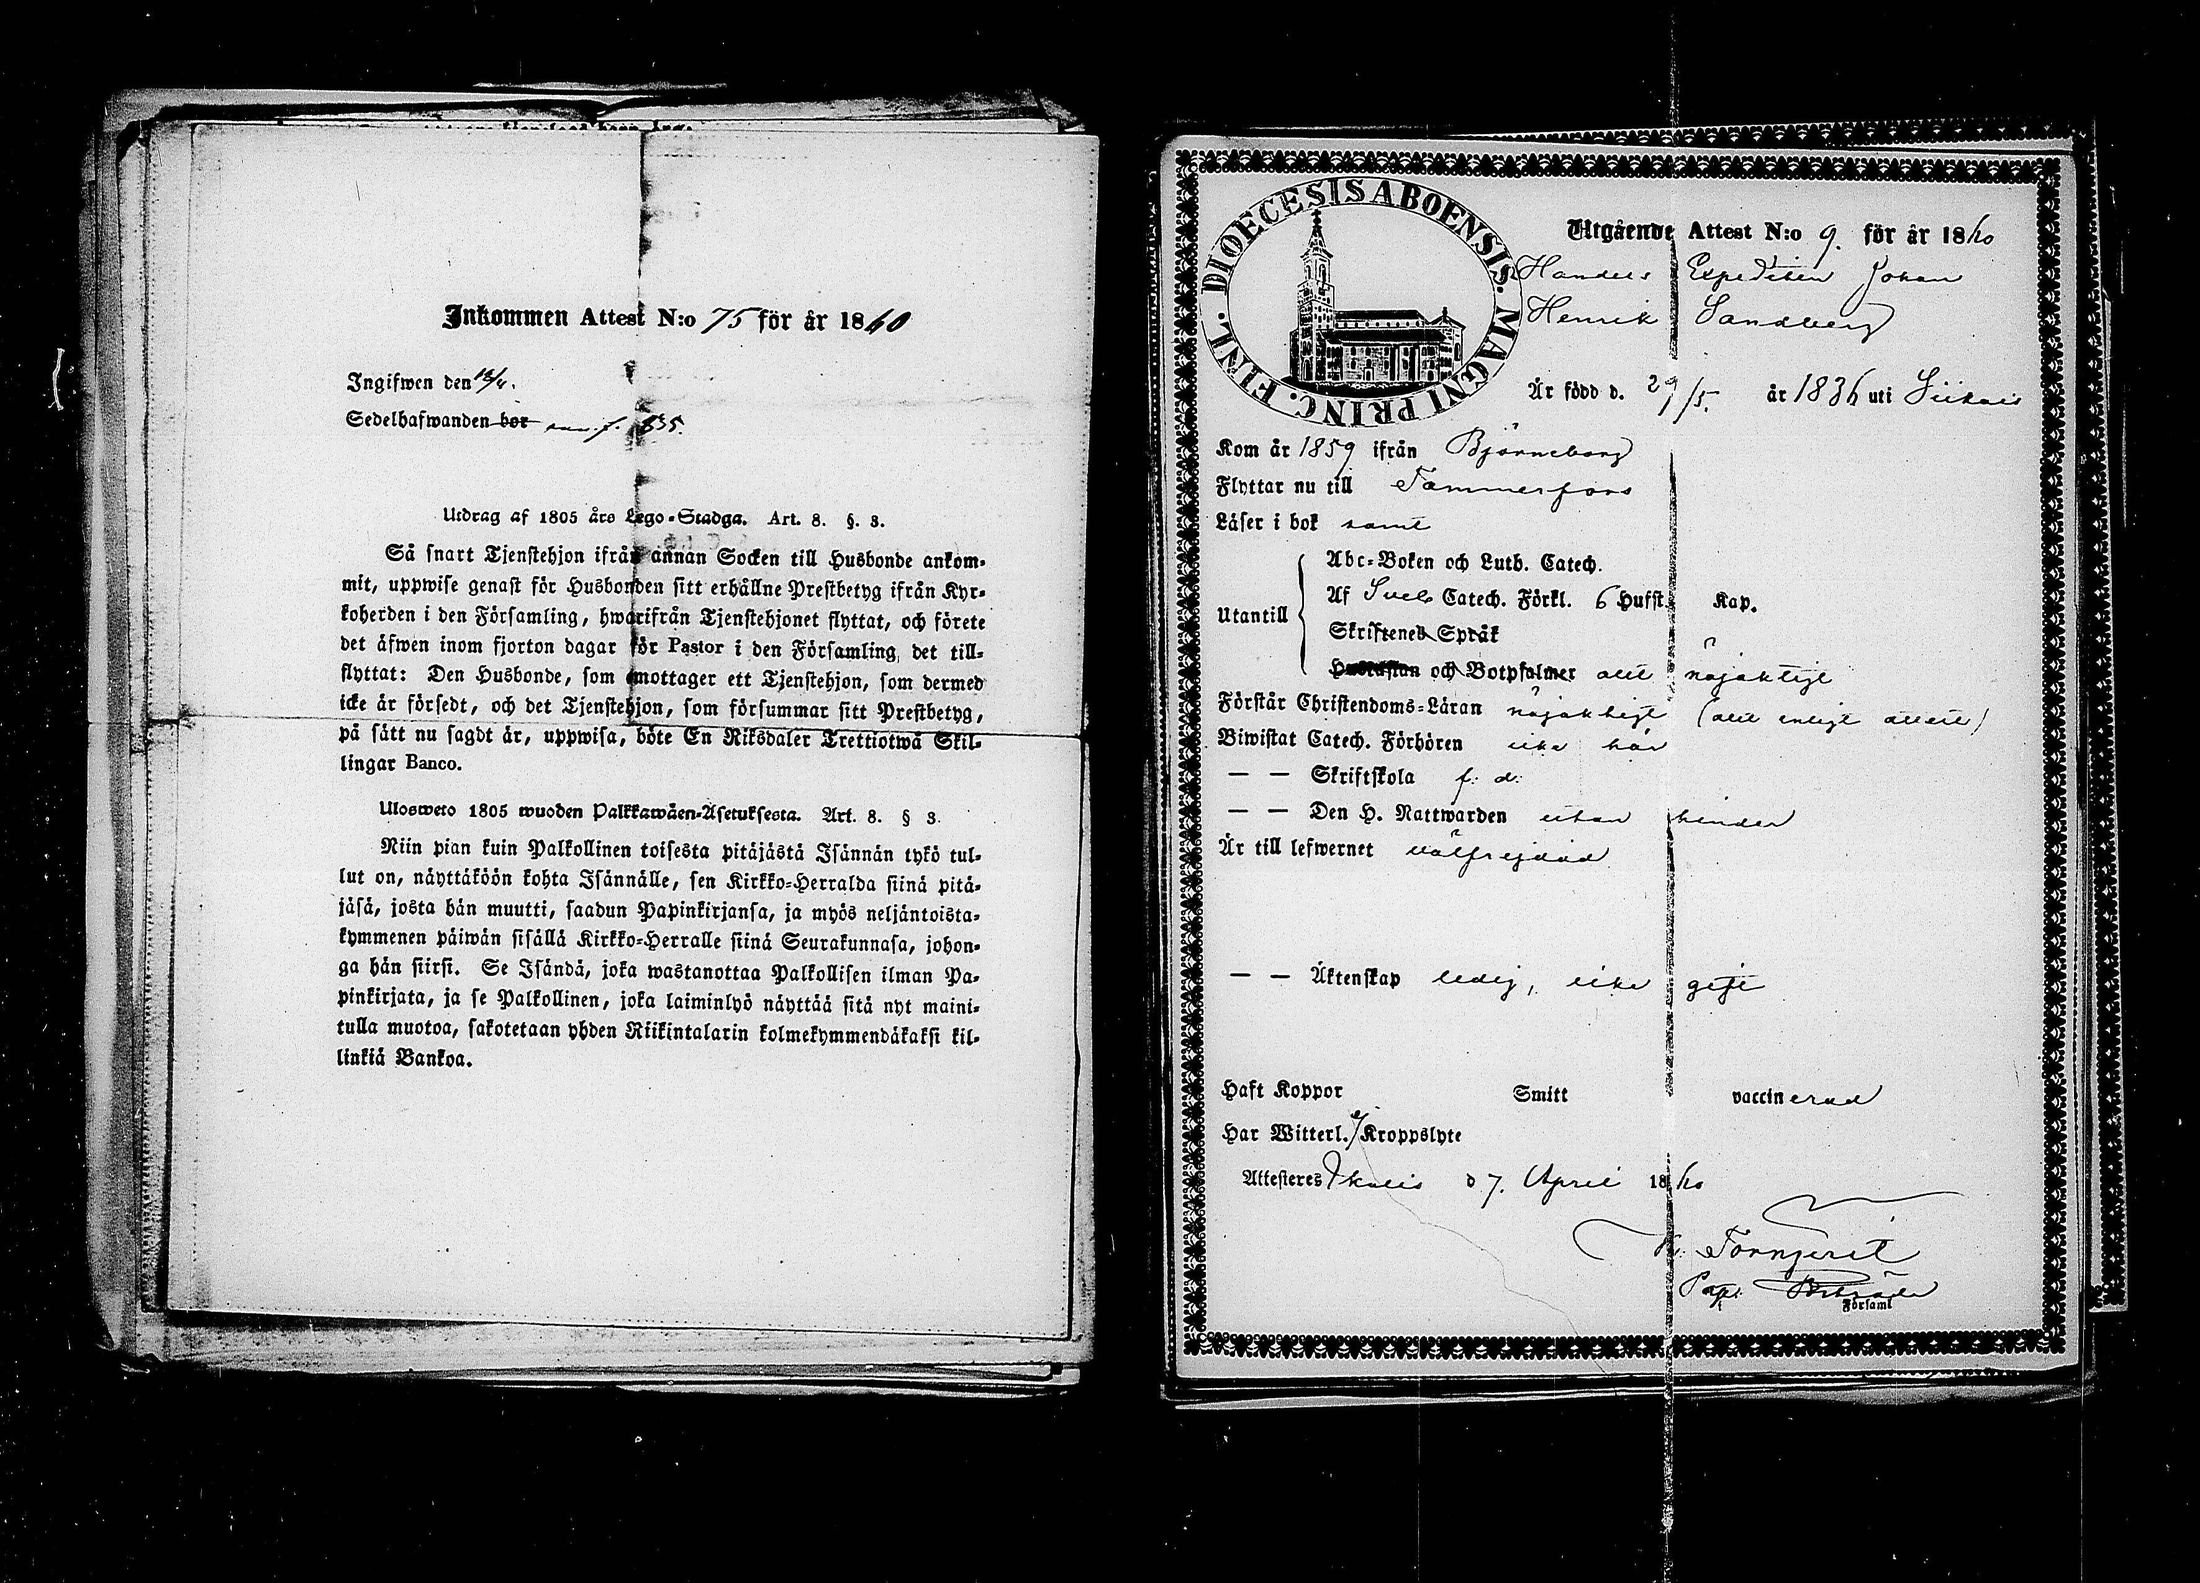 Inkommen Attest N:o 75 för år 1860
Ingifwen den 13/4.
Sedelhafwanden bör f. 635.
Utdrag af 1805 års Lego-Stadga. Art. 8. §. 3.
Så snart Tjenstehjon ifrån annan Socken till Husbonde ankom-
mit, uppwise genast för Husbonden sitt erhållne Prestbetyg ifrån Kyr-
koherden i den Församling, hwarifrån Tjenstehjonet flyttat, och förete
det äfwen inom fjorton dagar för Pastor i den Församling, det till-
flyttat: Den Husbonde, som emottager ett Tjenstehjon, som dermed
icke är försedt, och det Tjenstehjon, som försummar sitt Prestbetyg,
på sätt nu sagdt är, uppwisa, böte En Riksdaler Trettiotwå Skil-
lingar Banco.
Ulosweto 1805 wuoden Palkkawäen-Asetuksesta. Art. 8. § 3.
Niin pian kuin Palkollinen toisesta pitäjästä Isännän tykö tul-
lut on, näyttäköön kohta Isännälle, sen Kirkko-Herralda siinä pitä-
jäsä, josta hän muutti, saadun Papinkirjansa, ja myös neljäntoista-
kymmenen päiwän sisällä Kirkko-Herralle siinä Seurakunnasa, johon-
ga hän siirsi. Se Isändä, joka wastanottaa Palkollisen ilman Pa-
pinkirjata, ja se Palkollinen, joka laiminlyö näyttää sitä nyt maini-
tulla muotoa, sakotetaan yhden Riikintalarin kolmekymmendäkaksi kil-
linkiä Bankoa.
DIOECESIS ABOENSIS. MAGNI PRINC. FINL.
Utgående Attest N:o 9. för år 1860
Handels Expediten Johan
Henrik Sandberg
Är född d. 29/5. år 1836 uti Siikais
Kom år 1859 ifrån Björneborg
Flyttar nu till Tammerfors
Läser i bok samt
Utantill
Abc-Boken och Luth. Catech.
Af Sveb. Catech. Förkl. 6 Hufst. Kap.
Skriftenes Språk
Hustaflan och Botpsalmer allt nöjaktigt
Förstår Christendoms-Läran nöjaktigt (allt enligt attest)
Biwistat Catech. Förhören icke här
— — Skriftskola f. d.
— — Den H. Nattwarden utan hinder
Är till lefwernet välfrejdad
— — Äktenskap ledig, icke gift
Haft Koppor Smitt vaccinerad
Har Witterl. ej Kroppslyte
Attesteras Ikalis d 7. April 1860
K. Tornqvist
Past.
Församl